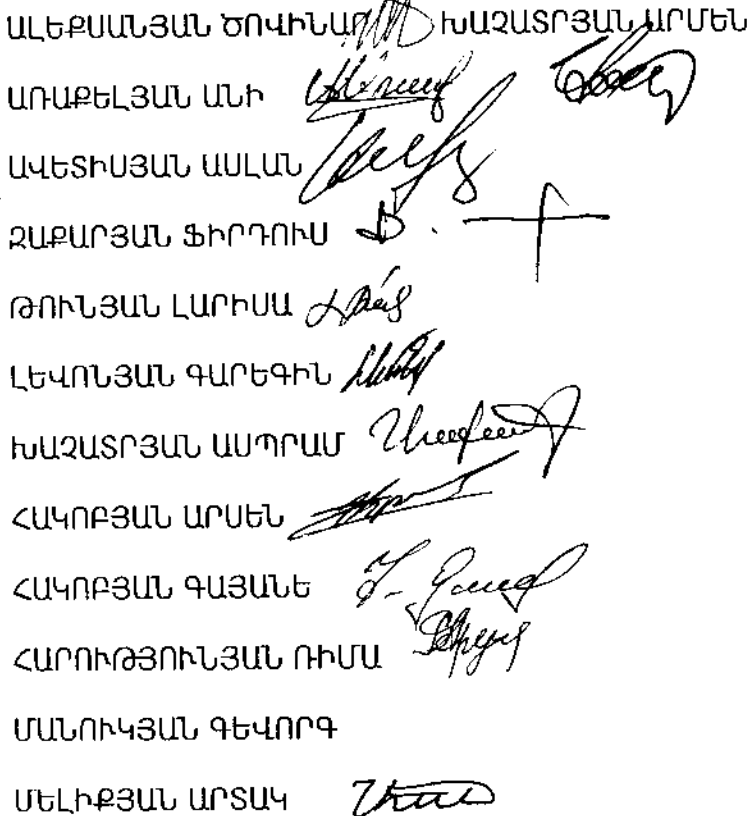 ԱԼԵՔՍԱՆՅԱՆ ԾՈՎԻՆԱՐ ԽԱՉԱՏՐՅԱՆ ԱՐՄԵՆ
ԱՌԱՔԵԼՅԱՆ ԱՆԻ
ԱՎԵՏԻՍՅԱՆ ԱՍԼԱՆ
ԶԱՔԱՐՅԱՆ ՖԻՐԴՈՒՍ
ԹՈՒՆՅԱՆ ԼԱՐԻՍԱ
ԼԵՎՈՆՅԱՆ ԳԱՐԵԳԻՆ
ԽԱՉԱՏՐՅԱՆ ԱՍՊՐԱՄ
ՀԱԿՈԲՅԱՆ ԱՐՍԵՆ
ՀԱԿՈԲՅԱՆ ԳԱՅԱՆԵ
ՀԱՐՈՒԹՅՈՒՆՅԱՆ ՌԻՄԱ
ՄԱՆՈՒԿՅԱՆ ԳԵՎՈՐԳ
ՄԵԼԻՔՅԱՆ ԱՐՏԱԿ